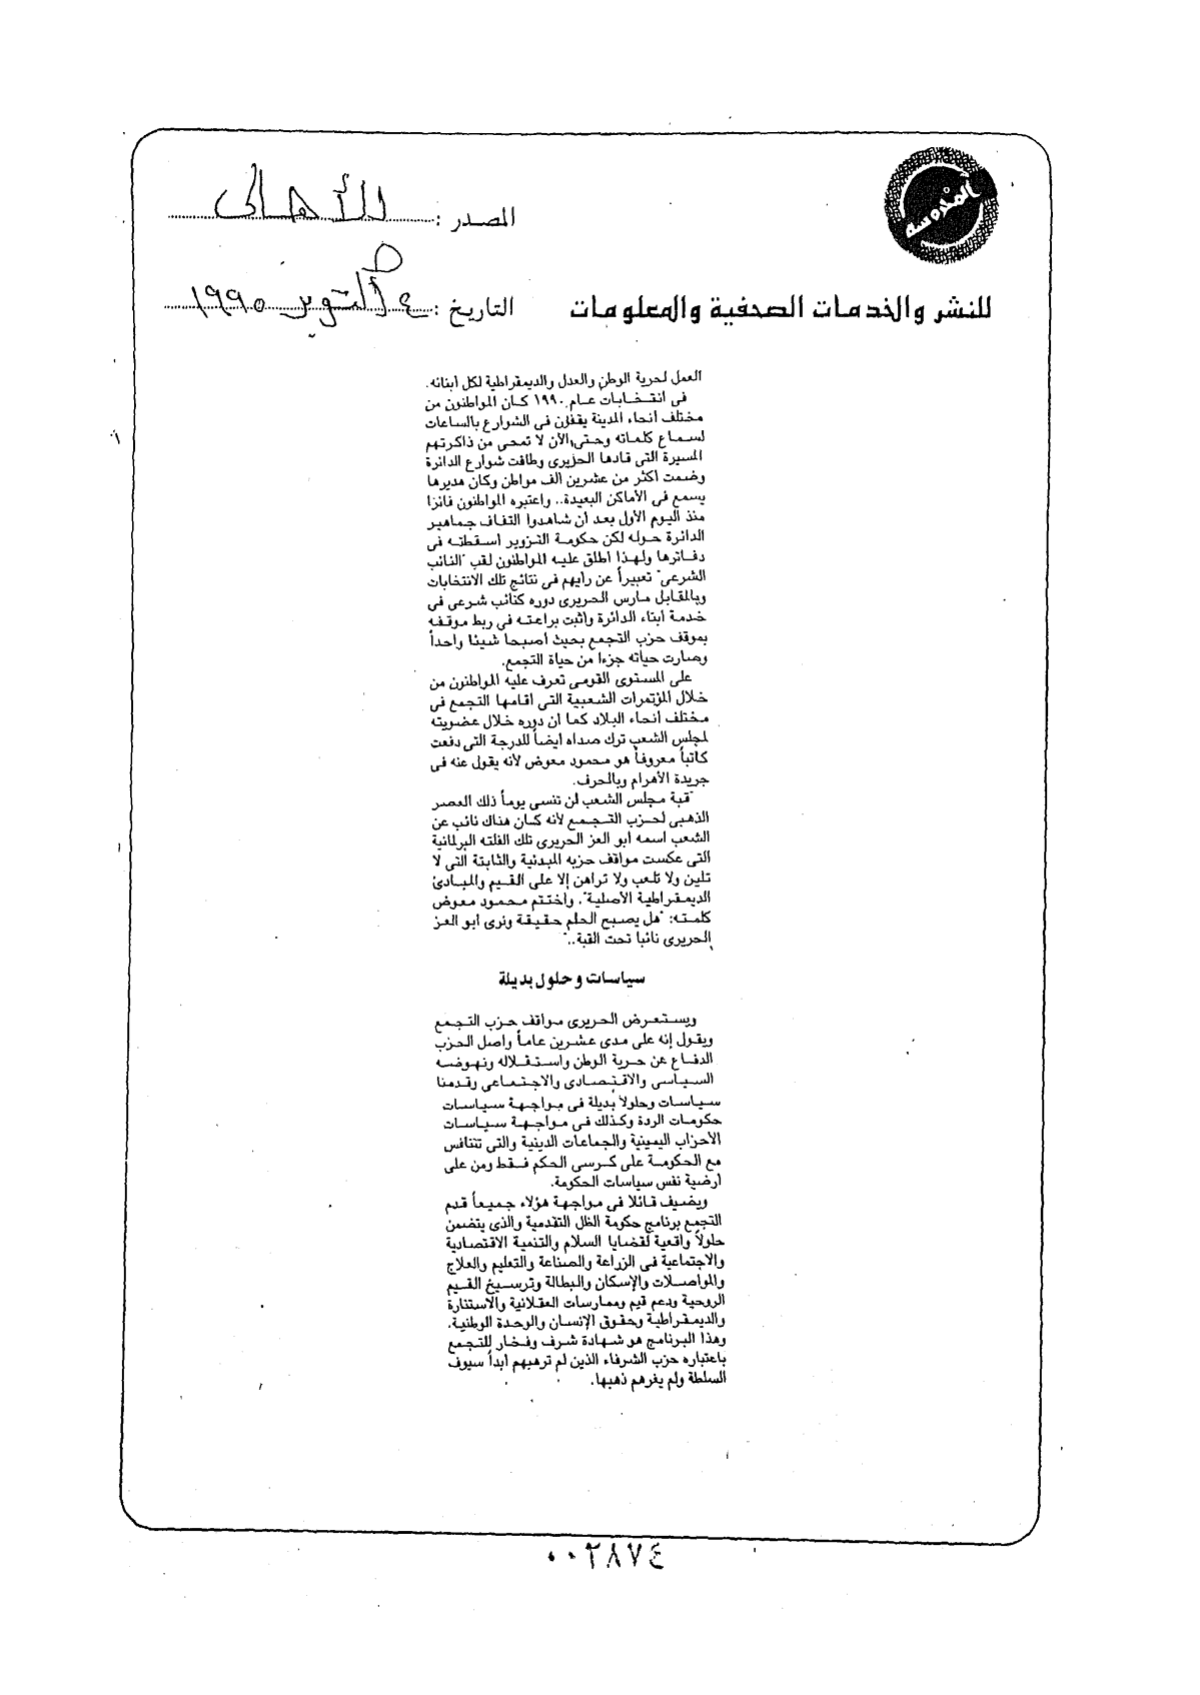 المدوسه
المصدر : الأهالى
للنشر والخدمات الصحفية والمعلومات
التاريخ : ٤ أكتوبر ١٩٩٥
العمل لحرية الوطن والعدل والديمقراطية لكل أبنائه.
فى انتخابات عام ١٩٩٠ كان المواطنون من
مختلف أنحاء المدينة يقفون فى الشوارع بالساعات
لسماع كلماته وحتى الآن لا تمحى من ذاكرتهم
المسيرة التى قادها الحريرى وطافت شوارع الدائرة
وضمت أكثر من عشرين ألف مواطن وكان هديرها
يسمع فى الأماكن البعيدة.. واعتبره المواطنون فائزا
منذ اليوم الأول بعد أن شاهدوا التفاف جماهير
الدائرة حوله لكن حكومة التزوير اسقطته فى
دفاترها ولهذا أطلق عليه المواطنون لقب "النائب
الشرعى" تعبيراً عن رأيهم فى نتائج تلك الانتخابات
وبالمقابل مارس الحريرى دوره كنائب شرعى فى
خدمة أبناء الدائرة وأثبت براعته فى ربط موقفه
بموقف حزب التجمع بحيث أصبحا شيئا واحداً
وصارت حياته جزءا من حياة التجمع.
على المستوى القومى تعرف عليه المواطنون من
خلال المؤتمرات الشعبية التى أقامها التجمع فى
مختلف أنحاء البلاد كما أن دوره خلال عضويته
لمجلس الشعب ترك صداه أيضاً للدرجة التى دفعت
كاتباً معروفاً هو محمود معوض لأنه يقول عنه فى
جريدة الأهرام وبالحرف.
"قبة مجلس الشعب لن تنسى يوماً ذلك العصر
الذهبى لحزب التجمع لأنه كان هناك نائب عن
الشعب اسمه أبو العز الحريرى تلك الفلته البرلمانية
التى عكست مواقف حزبه المبدئية والثابتة التى لا
تلين ولا تلعب ولا تراهن إلا على القيم والمبادئ
الديمقراطية الأصلية". واختتم محمود معوض
كلمته: "هل يصبح الحلم حقيقة ونرى أبو العز
الحريرى نائبا تحت القبة.."
سياسات وحلول بديلة
ويستعرض الحريرى مواقف حزب التجمع
ويقول إنه على مدى عشرين عاماً واصل الحزب
الدفاع عن حرية الوطن واستقلاله ونهوضه
السياسى والاقتصادى والاجتماعى وقدمنا
سياسات وحلولا بديلة فى مواجهة سياسات
حكومات الردة وكذلك فى مواجهة سياسات
الأحزاب اليمينية والجماعات الدينية والتى تتنافس
مع الحكومة على كرسى الحكم فقط ومن على
أرضية نفس سياسات الحكومة.
ويضيف قائلا فى مواجهة هؤلاء جميعاً قدم
التجمع برنامج حكومة الظل التقدمية والذى يتضمن
حلولاً واقعية لقضايا السلام والتنمية الاقتصادية
والاجتماعية فى الزراعة والصناعة والتعليم والعلاج
والمواصلات والإسكان والبطالة وترسيخ القيم
الروحية ودعم قيم وممارسات العقلانية والاستنارة
والديمقراطية وحقوق الإنسان والوحدة الوطنية.
وهذا البرنامج هو شهادة شرف وفخار للتجمع
باعتباره حزب الشرفاء الذين لم ترهبهم أبداً سيوف
السلطة ولم يغرهم ذهبها.
٠٠٢٨٧٤